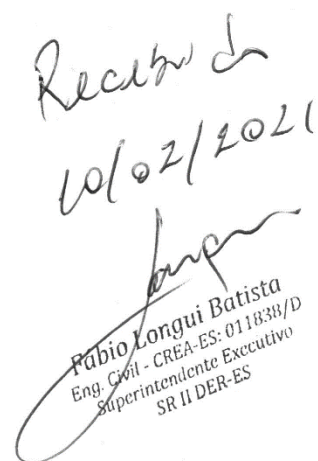 Recebido
10/02/2021
Fabio Longui Batista
Eng. Civil - CREA-ES: 011838/D
Superintendente Executivo
SR II DER-ES